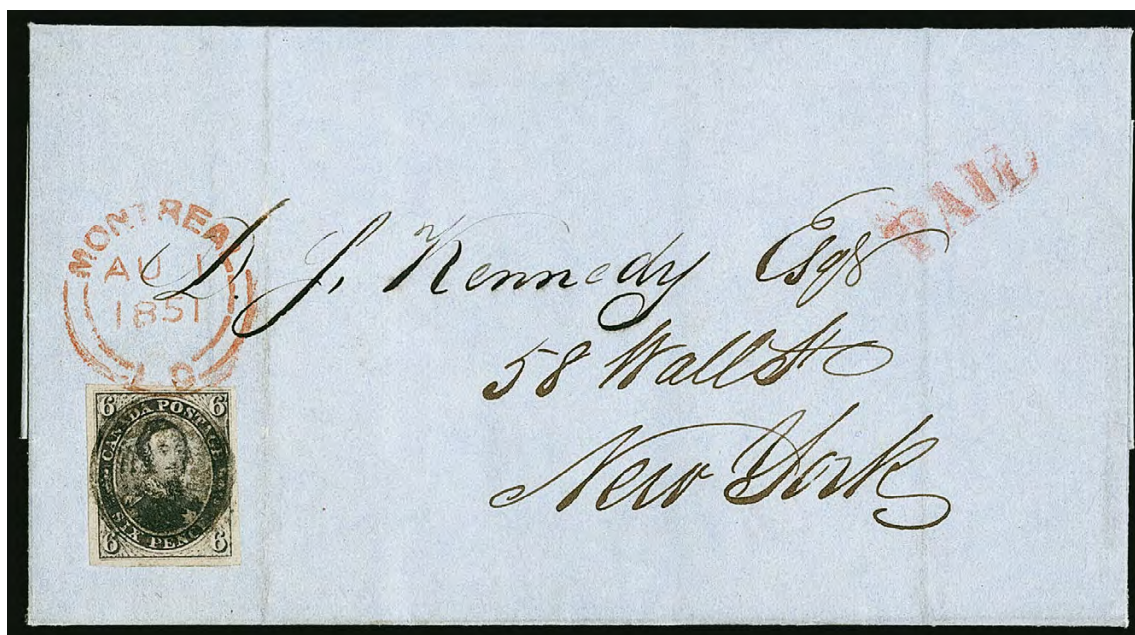 PAID
MONTREAL
AU 1
1851
L.C.
D. J. Kennedy Esqr
58 Wall St
New York
6 6
CANADA POSTAGE
SIX PENCE
6 6